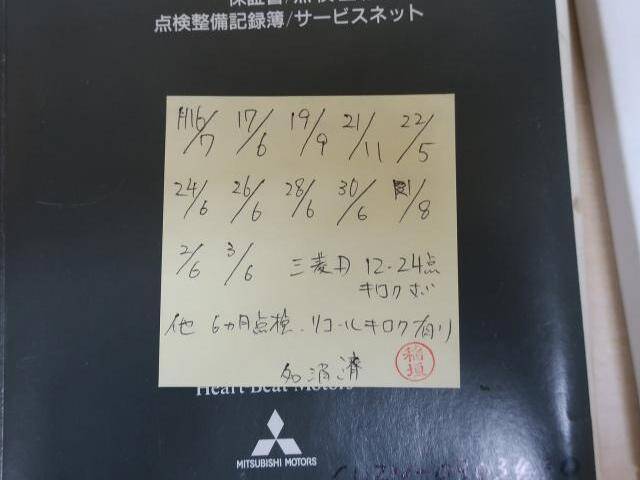 点検整備記録簿/サービスネット
H16/7 17/6 19/9 21/11 22/5
24/6 26/6 28/6 30/6 1/8
2/6 3/6 三菱D 12・24点
キロク
他 6ヵ月点検、リコールキロク有り
消済
稲垣
Heart Beat Motors
MITSUBISHI MOTORS